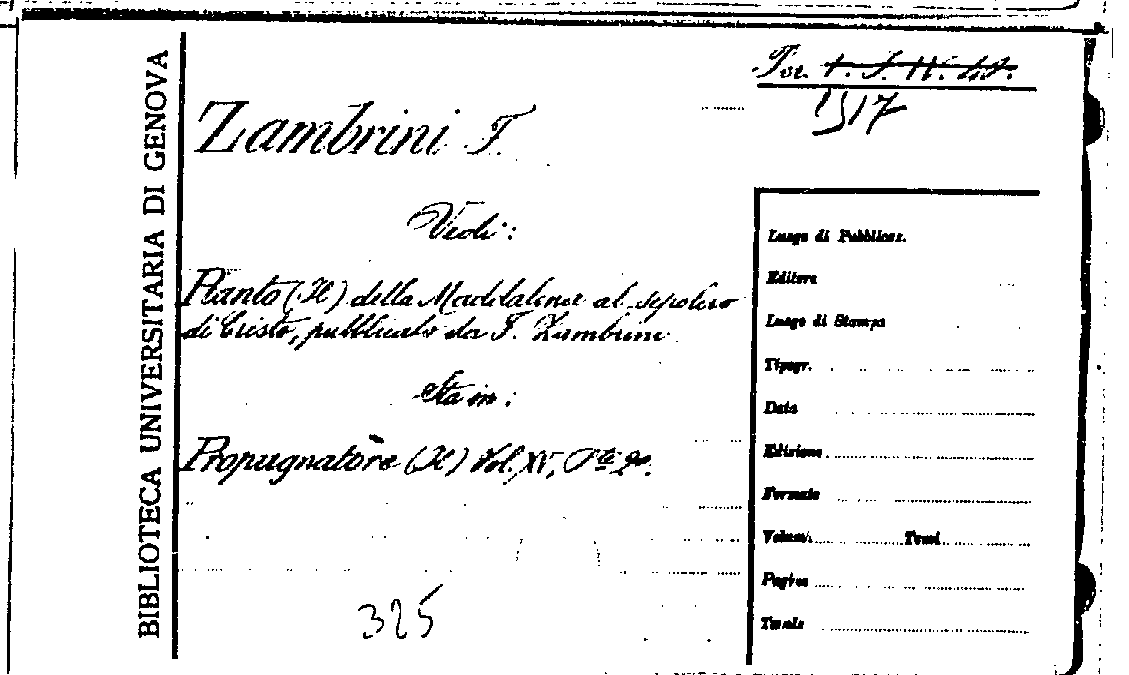 BIBLIOTECA UNIVERSITARIA DI GENOVA
Per.
1517
Zambrini F.
Vedi:
Pianto (Il) della Maddalena al sepolcro
di Cristo, pubblicato da F. Zambrini
Sta in:
Propugnatore (Il) Vol. XV, Pte 2a.
325
Luogo di Pubblicaz.
Editore
Luogo di Stampa
Tipogr.
Data
Edizione
Formato
Volumi Tomi
Pagine
Tavole